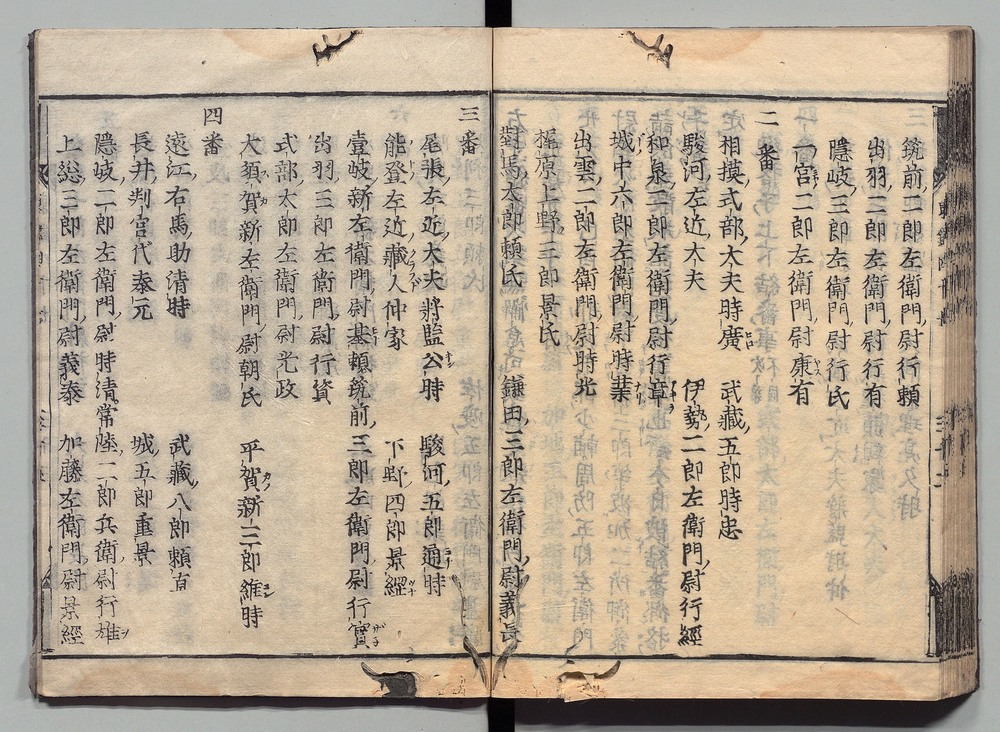 筑前二郎左衛門尉行頼
出羽二郎左衛門尉行有
隱岐三郎左衛門尉行氏
一宮二郎左衛門尉康有
二番
相摸式部大夫時廣 武藏五郎時忠
駿河左近大夫 伊勢二郎左衛門尉行經
和泉三郎左衛門尉行章
城中六郎左衛門尉時業
出雲二郎左衛門尉時光
梶原上野三郎景氏
對馬太郎頼氏 鎌田三郎左衛門尉義長
三番
尾張左近大夫將監公時 駿河五郎通時
能登左近藏人仲家 下野四郎景經
壹岐新左衛門尉基頼 筑前三郎左衛門尉行實
出羽三郎左衛門尉行資
式部太郎左衛門尉光政
大須賀新左衛門尉朝氏 平賀新三郎維時
四番
遠江右馬助清時 武藏八郎頼直
長井判官代泰元 城五郎重景
隱岐二郎左衛門尉時清 常陸二郎兵衛尉行雄
上総三郎左衛門尉義泰 加藤左衛門尉景經